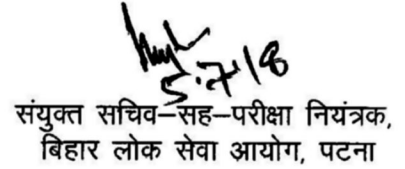 5.7.18
संयुक्त सचिव–सह–परीक्षा नियंत्रक,
बिहार लोक सेवा आयोग, पटना